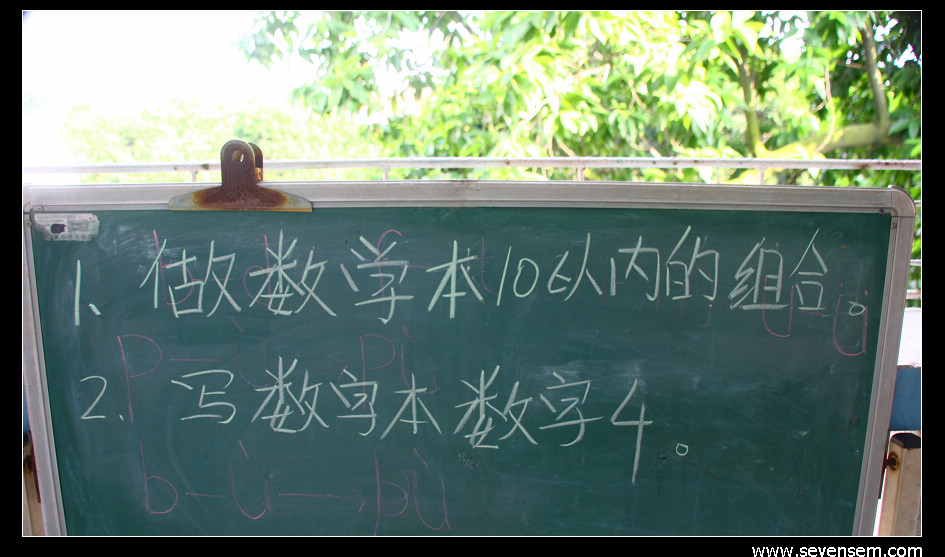 1、做数学本10以内的组合。
p
2. 写数字本数字4。
b-ù-pù
www.sevensem.com